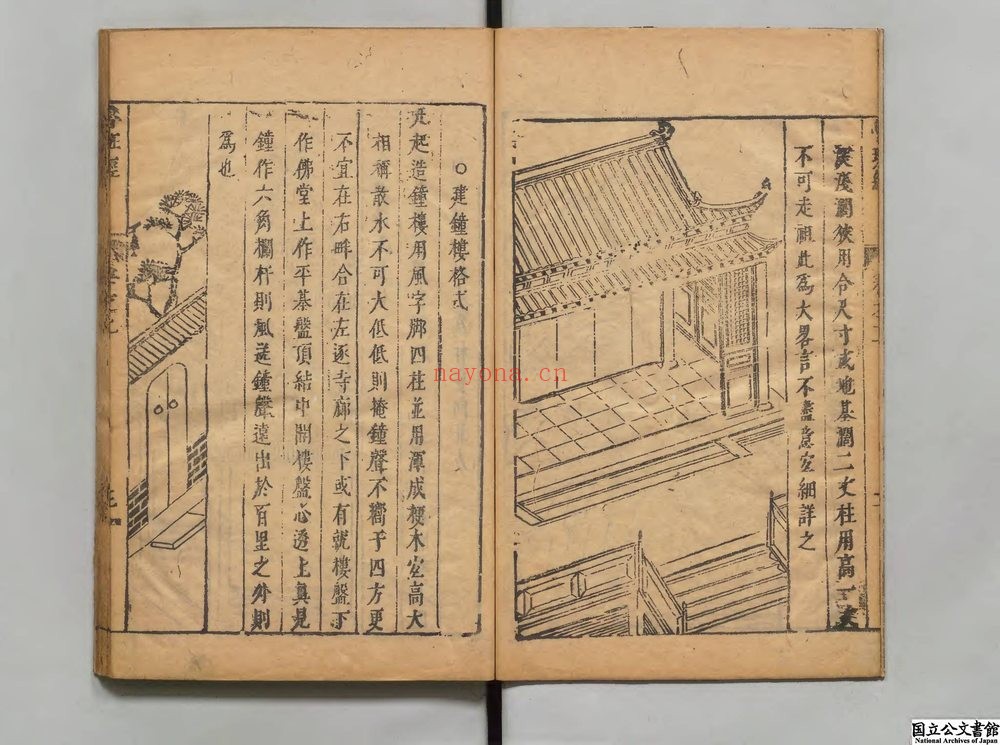 濶狹用合尺寸或地基濶二丈柱用高三丈
不可走祖此為大畧言不盡意宜細詳之
○建鐘樓格式
凡起造鐘樓用風字脚四柱並用渾成梗木宜高大
相稱散水不可大低低則掩鐘聲不嚮于四方更
不宜在右畔合在左逐寺廊之下或有就樓盤下
作佛堂上作平基盤頂結中開樓盤心透上真見
鐘作六角欄杆則風送鐘聲遠出於百里之外則
為也
魯班經
nayona.cn
国立公文書館
National Archives of Japan